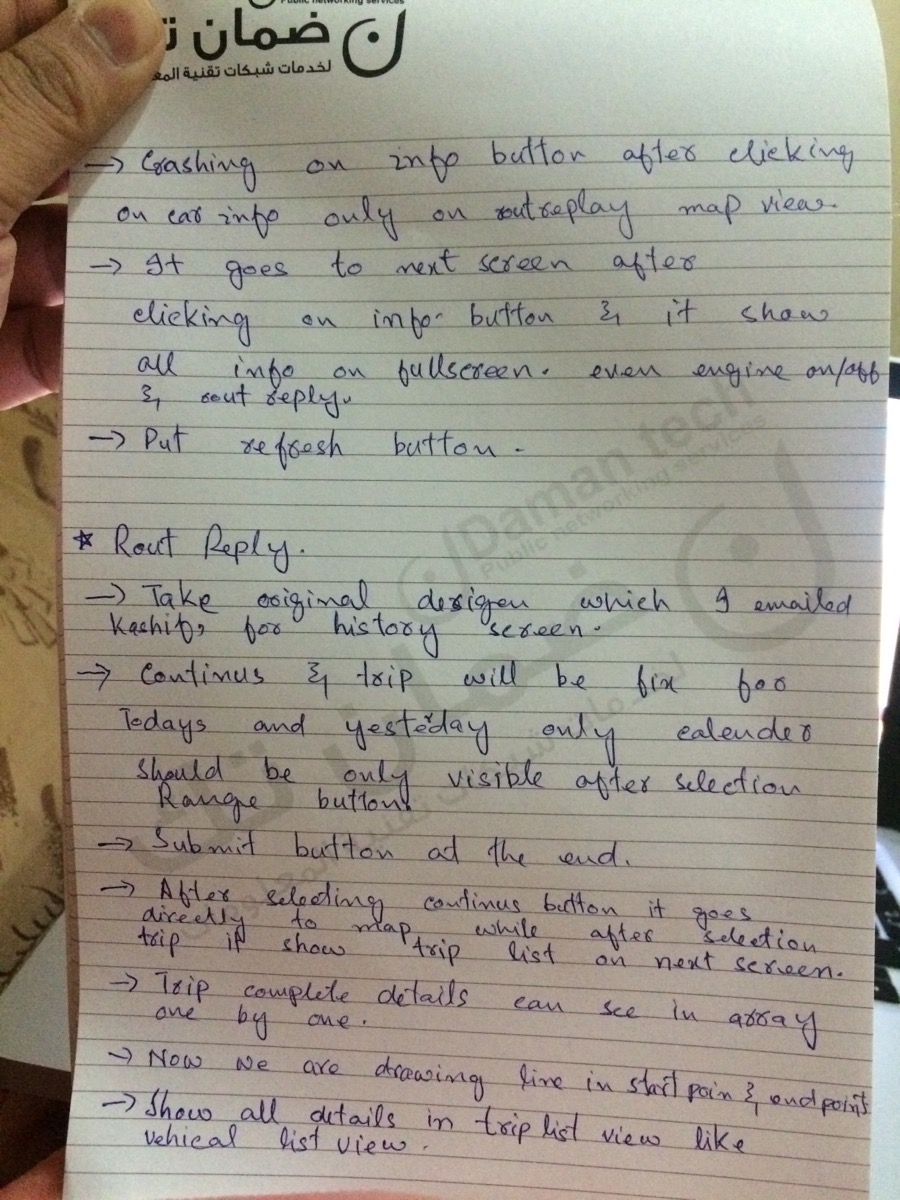 Public networking services
ضمان ت
لخدمات شبكات تقنية المع
→ Crashing on info button after clicking
on car info only on routreplay map view.
→ It goes to next screen after
clicking on info button & it show
all info on fullscreen. even engine on/off
& rout reply.
→ Put refresh button.
Daman tech
Public networking services
* Rout Reply.
→ Take original desigen which I emailed
Kashif, for history screen.
→ Continus & trip will be fix for
Todays and yesterday only calender
should be only visible after selection
Range button.
→ Submit button at the end.
→ After selecting continus button it goes
direclly to map, while after selection
trip it show trip list on next screen.
→ Trip complete details can see in array
one by one.
→ Now we are drawing line in start poin & end points
→ Show all details in trip list view like
vehical list view.